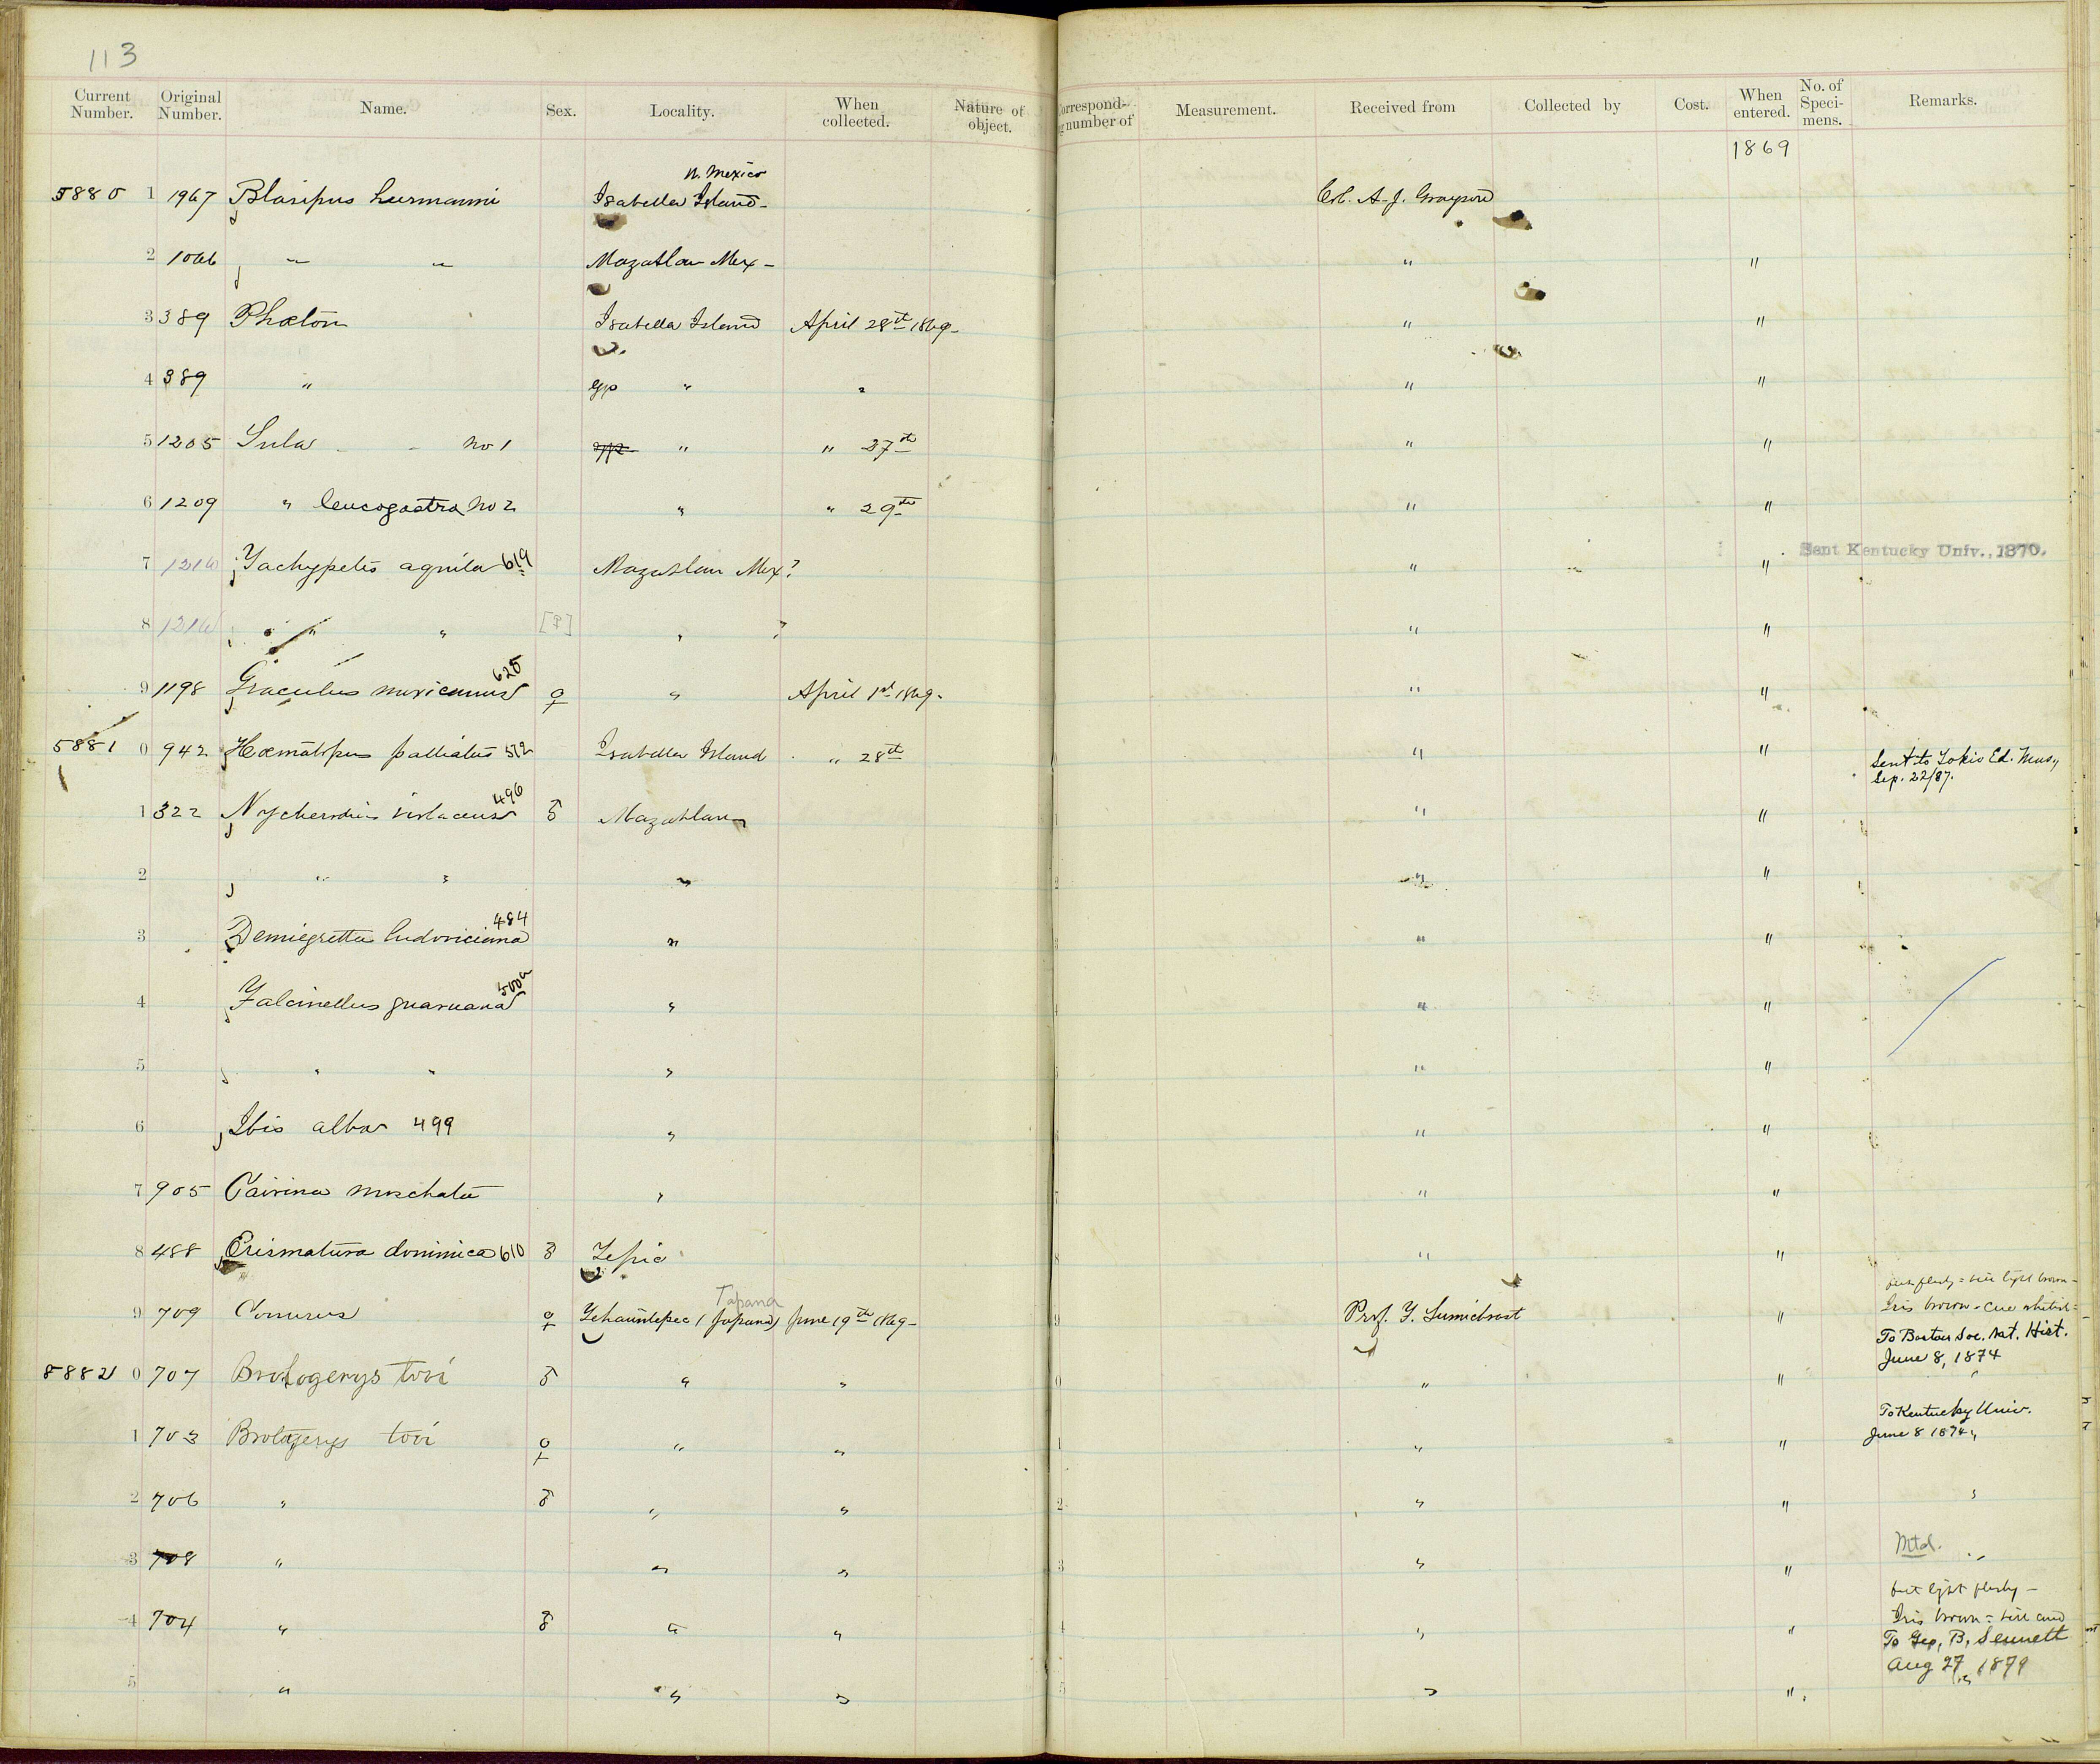 113
Current Number. Original Number. Name. Sex. Locality. When collected. Nature of object. Correspond- number of Measurement. Received from Collected by Cost. When entered. No. of Speci- mens. Remarks.
1869
N. Mexico
5880 1 1967 Blasipus heermanni Isabella Island - Col. A. J. Grayson
2 1066 " " Mazatlan Mex - " "
3 389 Phæton Isabella Island April 28th 1869 - " "
4 389 " " " " "
5 1205 Sula - - no 1 " " 27th " "
6 1209 " leucogastra no 2 " " 29th " "
Sent Kentucky Univ., 1870.
7 1216 Tachypetes aquila 619 Mazatlan Mex? " "
8 1216 " " [♀] " ? " "
9 1198 Graculus mexicanus 625 ♀ " April 1st 1869. " "
5881 0 942 Hæmatopus palliatus 512 Isabella Island " 28th " " Sent to Tokio Ed. Mus., Sep. 22/87.
1 322 Nycherodius violaceus 496 ♂ Mazatlan " "
2 " " " " "
3 Demiegretta ludoviciana 484 " " "
4 Falcinellus guarauna 500a " " "
5 " " " " "
6 Ibis alba 499 " " "
7 905 Cairina moschata " " "
8 488 Erismatura dominica 610 ♂ Tepic " "
Tapana
9 709 Conurus ♀ Tehauntepec (Japana) June 19th 1869 - Prof. F. Sumichrast "
Iris brown -
To Boston Soc. Nat. Hist.
June 8, 1874
5882 0 707 Brotogerys tovi ♂ " " " " "
To Kentucky Univ.
1 703 Brotogerys tovi ♀ " " " " June 8 1874 "
2 706 " ♂ " " " " "
Mtd.
3 708 " " " " " "
feet light fleshy -
Iris brown =
4 704 " ♂ " " " " To Geo. B. Sennett
Aug 27, 1879
5 " " " " "